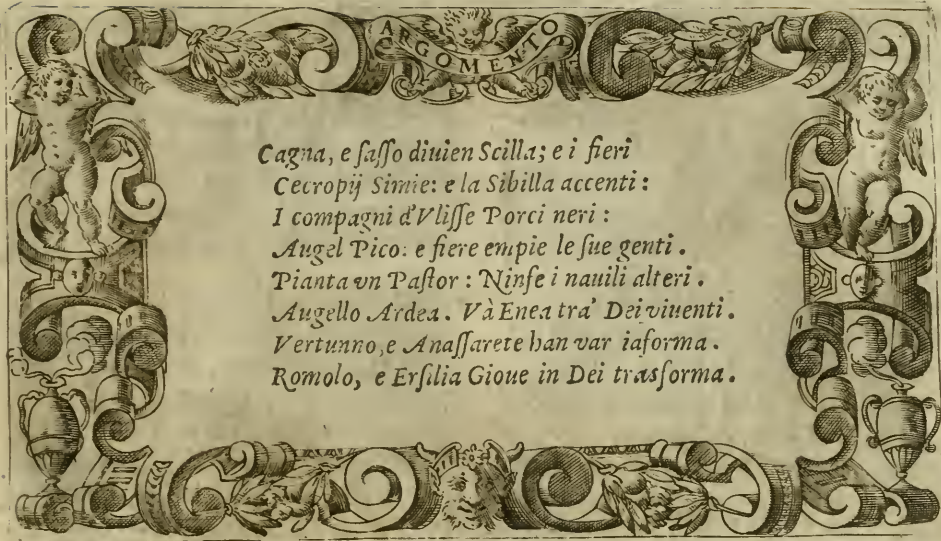 ARGOMENTO
Cagna, e ſaſſo diuien Scilla; e i fieri
Cecropij Simie: e la Sibilla accenti:
I compagni d'Vliſſe Porci neri:
Augel Pico: e fiere empie le ſue genti.
Pianta vn Paſtor: Ninfe i nauili alteri.
Augello Ardea. Và Enea tra' Dei viuenti.
Vertunno, e Anaſſarete han var iaforma.
Romolo, e Erſilia Gioue in Dei trasforma.